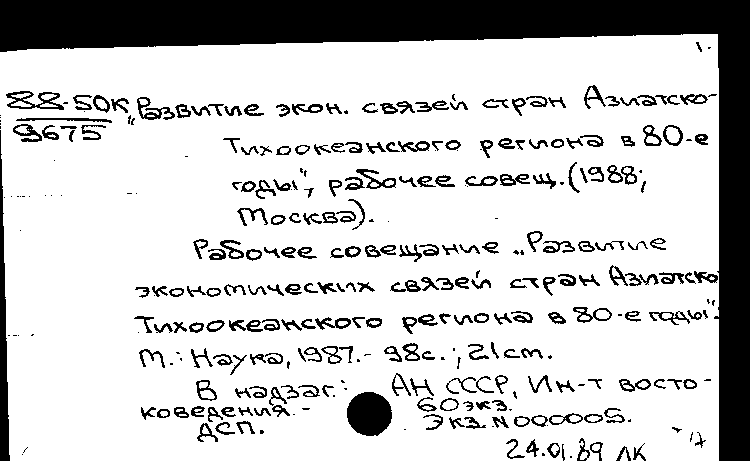 1.
88-50К „Развитие экон. связей стран Азиатско-
9675
Тихоокеанского региона в 80-е
годы", рабочее совещ. (1988;
Москва).
Рабочее совещание „Развитие
экономических связей стран Азиатско
Тихоокеанского региона в 80-е годы".
М.: Наука, 1987.- 98с.; 21см.
В надзаг.: АН СССР, Ин-т восто-
коведения.- 60экз.
ДСП. Экз. N 000005.
24.01.89 ЛК